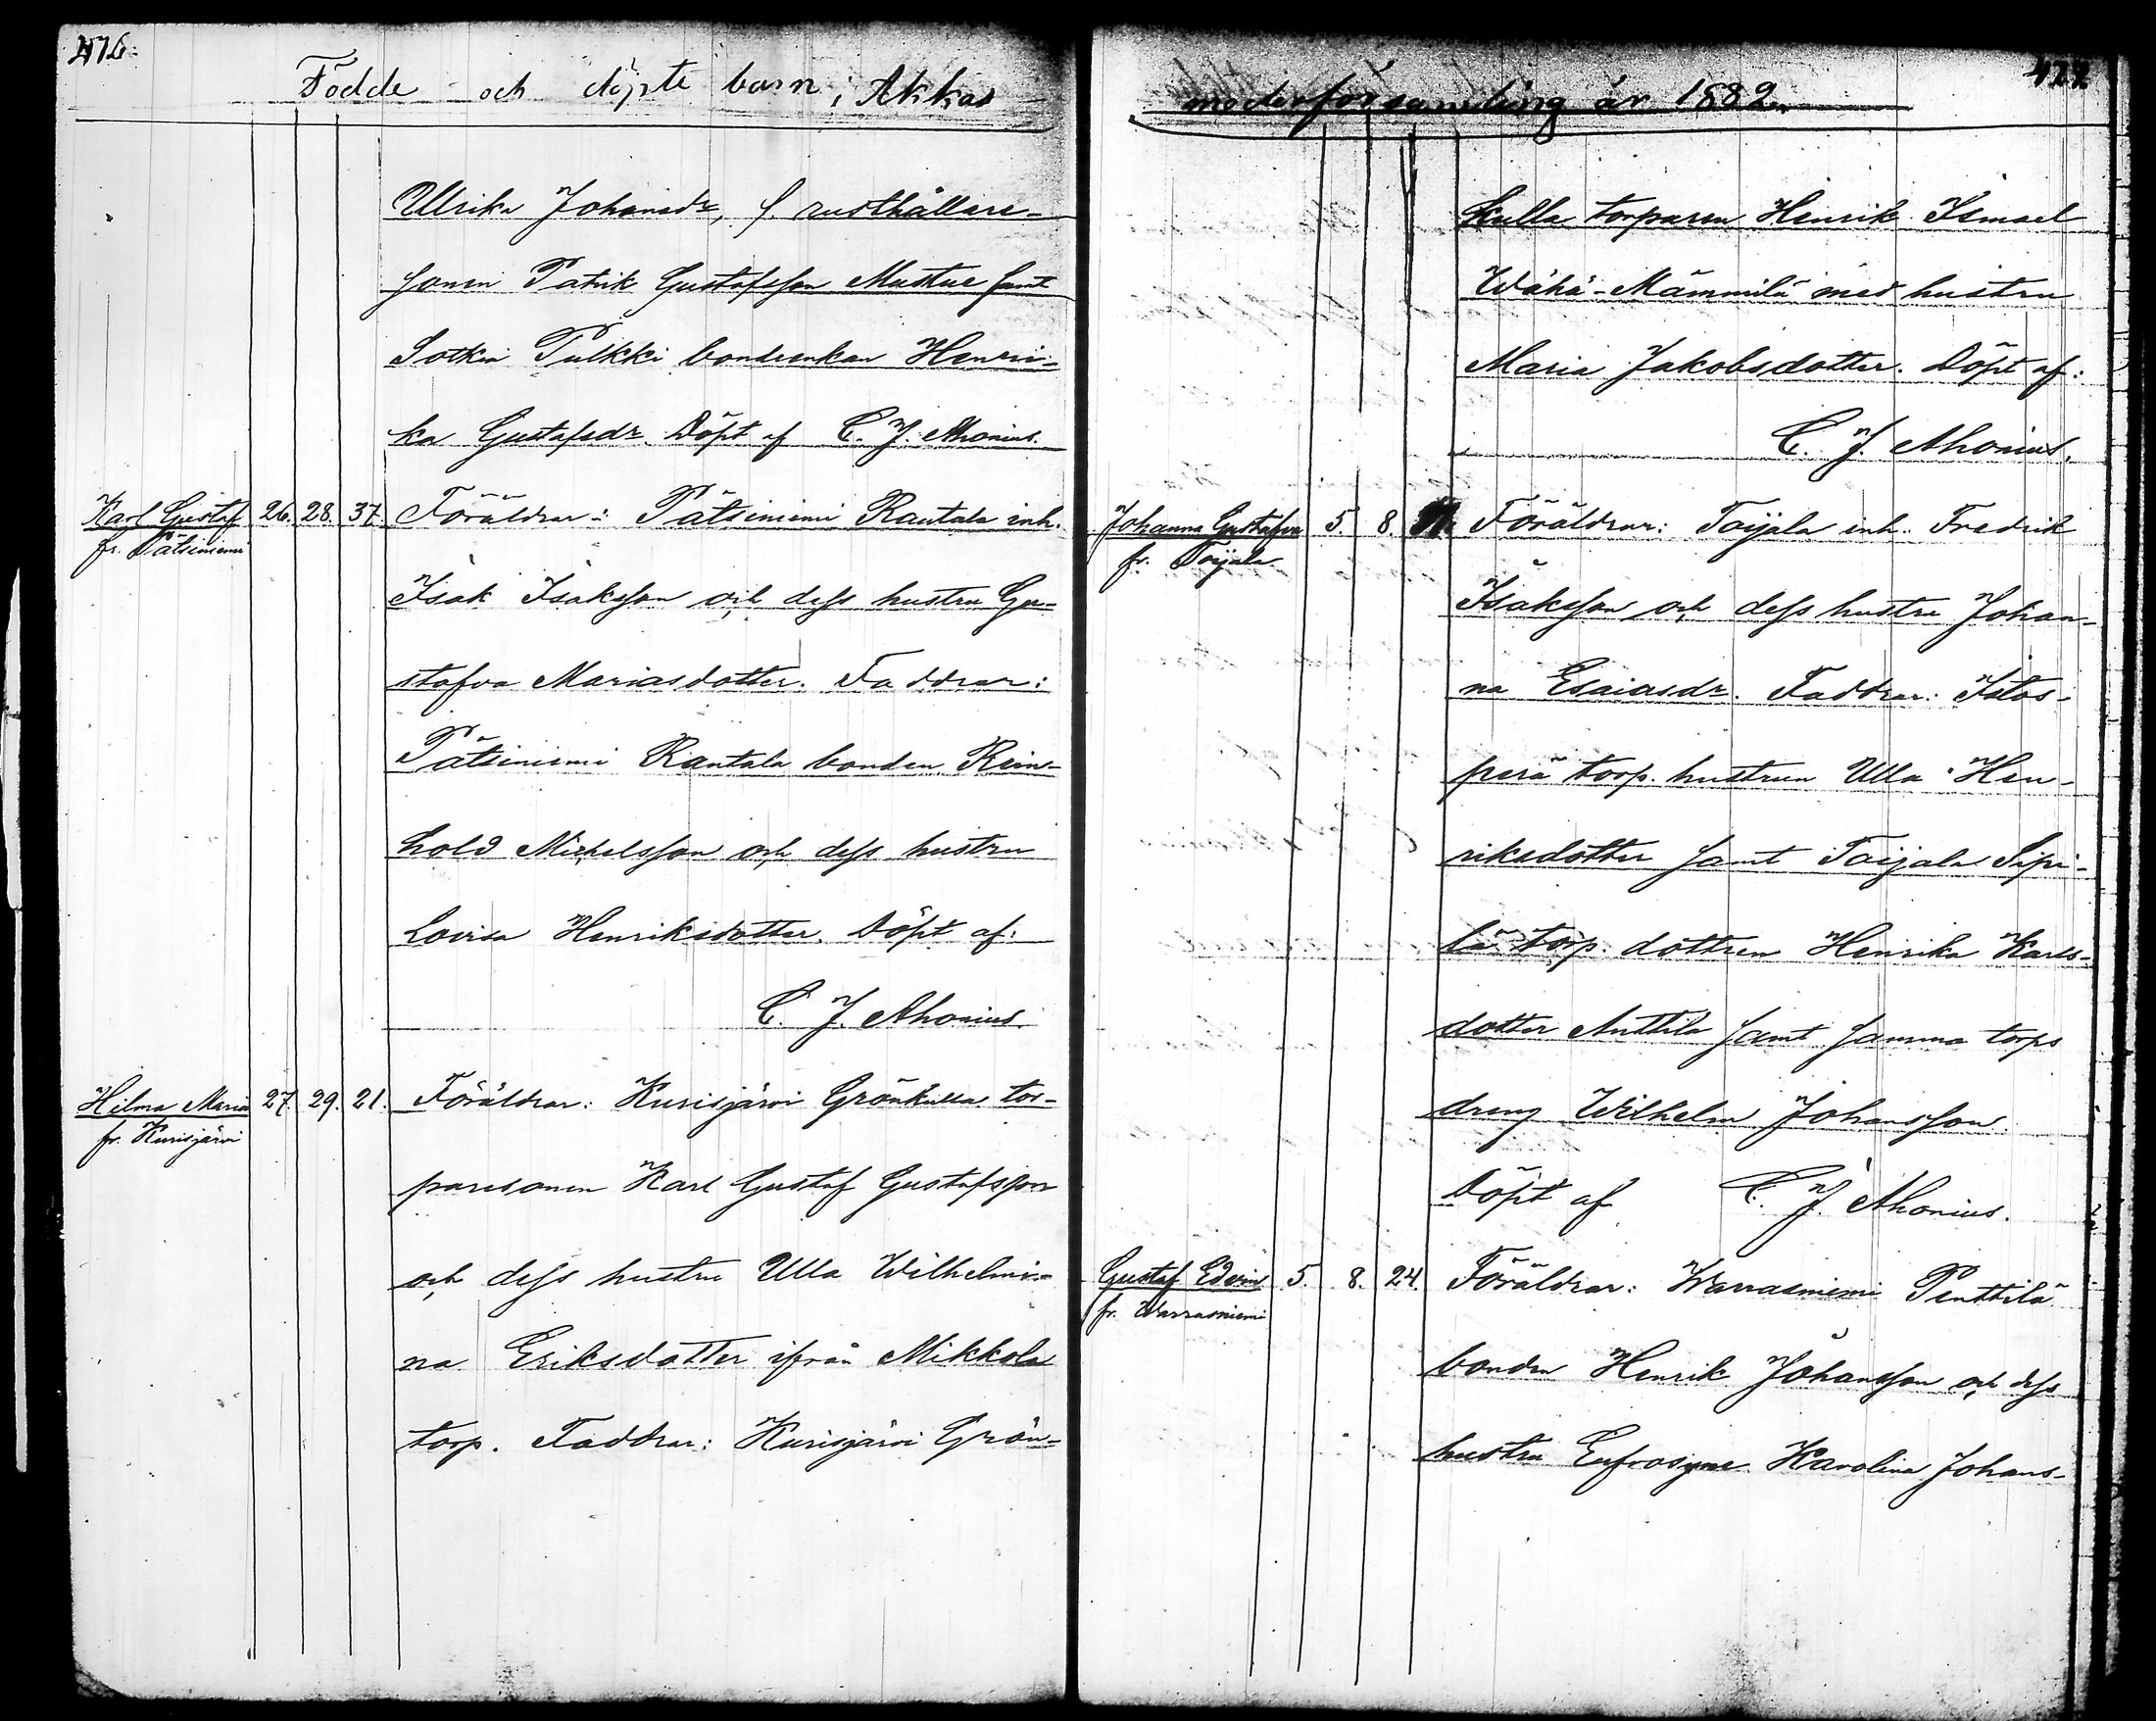 476.
Födde och döpte barn i Akkas
Ulrika Johansdr, f. rusthållare-
sonen Patrik Gustafsson Mustue samt
Sotkia Pulkki bondeenkan Henri-
ka Gustafsdr. Döpt af C. J. Ahonius.
Karl Gustaf 26. 28. 37. Föräldrar: Pätsiniemi Rantala inh.
fr. Pätsiniemi
Isak Isaksson och dess hustru Gu-
stafva Mariasdotter. Faddrar:
Pätsiniemi Rantala bonden Rein-
hold Michelsson och dess hustru
Lovisa Henriksdotter. Döpt af:
C. J. Ahonius.
Hilma Maria 27. 29. 21. Föräldrar: Kurisjärvi Grönkulla tor-
fr. Kurisjärvi
paresonen Karl Gustaf Gustafsson
och dess hustru Ulla Wilhelmi-
na Eriksdotter ifrån Mikkola
torp. Faddrar: Kurisjärvi Grön-
477.
moderförsamling år 1882.
kulla torparen Henrik Ismael
Wähä-Mämmilä med hustru
Maria Jakobsdotter. Döpt af:
C. J. Ahonius.
Johanna Gustafva 5. 8. Föräldrar: Toijala inh. Fredrik
fr. Toijala
Isaksson och dess hustru Johan-
na Esaiasdr. Faddrar:
perä torp. hustrun Ulla Hen-
riksdotter samt Toijala Sipi-
lä torp. dottren Henrika Karls-
dotter Anttila samt samma torps
dreng Wilhelm Johansson.
Döpt af C. J. Ahonius.
Gustaf Edvin 5. 8. 24. Föräldrar: Warrasniemi Penttilä
fr. Warrasniemi
bonden Henrik Johansson och dess
hustru Eufrosyne Karolina Johans-